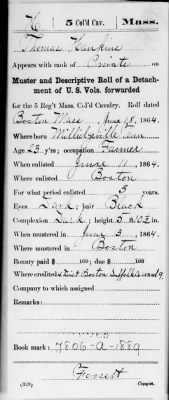 H 5 Col'd Cav. Mass.
Thomas Hawkins
Appears with rank of Private on
Muster and Descriptive Roll of a Detach-
ment of U. S. Vols. forwarded
for the 5 Reg't Mass. Col'd Cavalry. Roll dated
Boston Mass June 18, 1864.
Where born
Age 23 y'rs; occupation Farmer
When enlisted June 11, 1864.
Where enlisted Boston
For what period enlisted 3 years.
Eyes Dark; hair Black
Complexion Dark; height 5 ft. 10½ in.
When mustered in June 3, 1864.
Where mustered in Boston
Bounty paid $ 100; due $ 100
Where credited Boston Suffolk ward 9
Company to which assigned
Remarks:
Book mark: 7806-A-1889
Copyist.